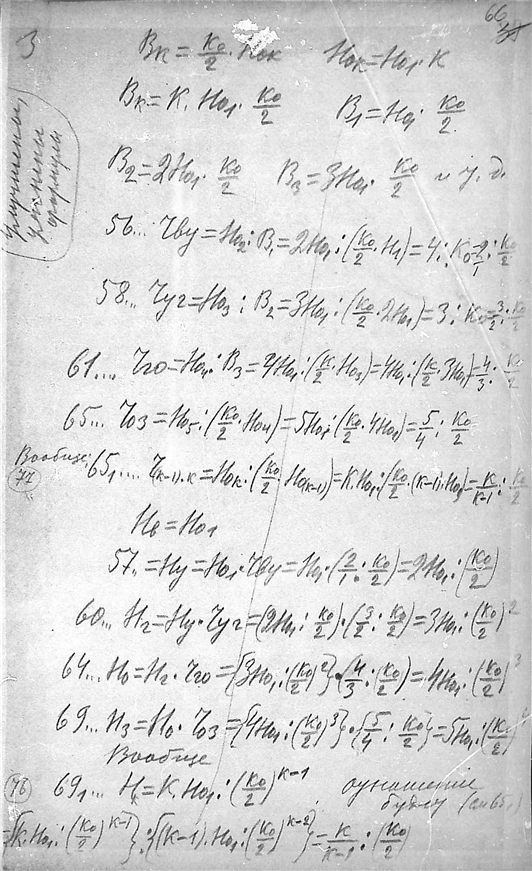 66
3
B_k = K_0/2 · H_0k    H_0k = H_01 · K
B_k = K · H_01 · K_0/2    B_1 = H_01 · K_0/2
B_2 = 2H_01 · K_0/2    B_3 = 3H_01 · K_0/2 и т. д.
формулы
56... Чву = H_02 : B_1 = 2H_01 : (K_0/2 · H_1) = 4 : K_0 = 2/1 : K_0/2
58... Чуг = H_03 : B_2 = 3H_01 : (K_0/2 · 2H_01) = 3 : K_0 = 3/2 : K_0/2
61.... Чго = H_04 : B_3 = 4H_01 : (K/2 · H_03) = 4H_01 : (K/2 · 3H_01) = 4/3 : K_0/2
65... Чоз = H_05 : (K_0/2 · H_04) = 5H_01 : (K_0/2 · 4H_01) = 5/4 : K_0/2
Вообще:
(77) 65_1.... Ч_(k-1)·k = H_0k : (K_0/2 · H_0(k-1)) = K · H_01 : (K_0/2 · (K-1) · H_01) = K/(K-1) : K_0/2
H_в = H_01
57.. = H_у = H_01 · Чву = H_01 · (2/1 : K_0/2) = 2H_01 : (K_0/2)
60... H_г = H_у · Чуг = (2H_01 : K_0/2) · (3/2 : K_0/2) = 3H_01 : (K_0/2)^2
64... H_о = H_г · Чго = {3H_01 : (K_0/2)^2} · (4/3 : (K_0/2)) = 4H_01 : (K_0/2)^3
69... H_з = H_о · Чоз = {4H_01 : (K_0/2)^3} · {5/4 : K_0/2} = 5H_01 : (K_0/2)
Вообще
(78) 69_1... H_k = K · H_01 : (K_0/2)^(k-1)    отношение
будет (см 65_1)
= {K · H_01 : (K_0/2)^(k-1)} : {(K-1) · H_01 : (K_0/2)^(k-2)} = K/(K-1) : (K_0/2)